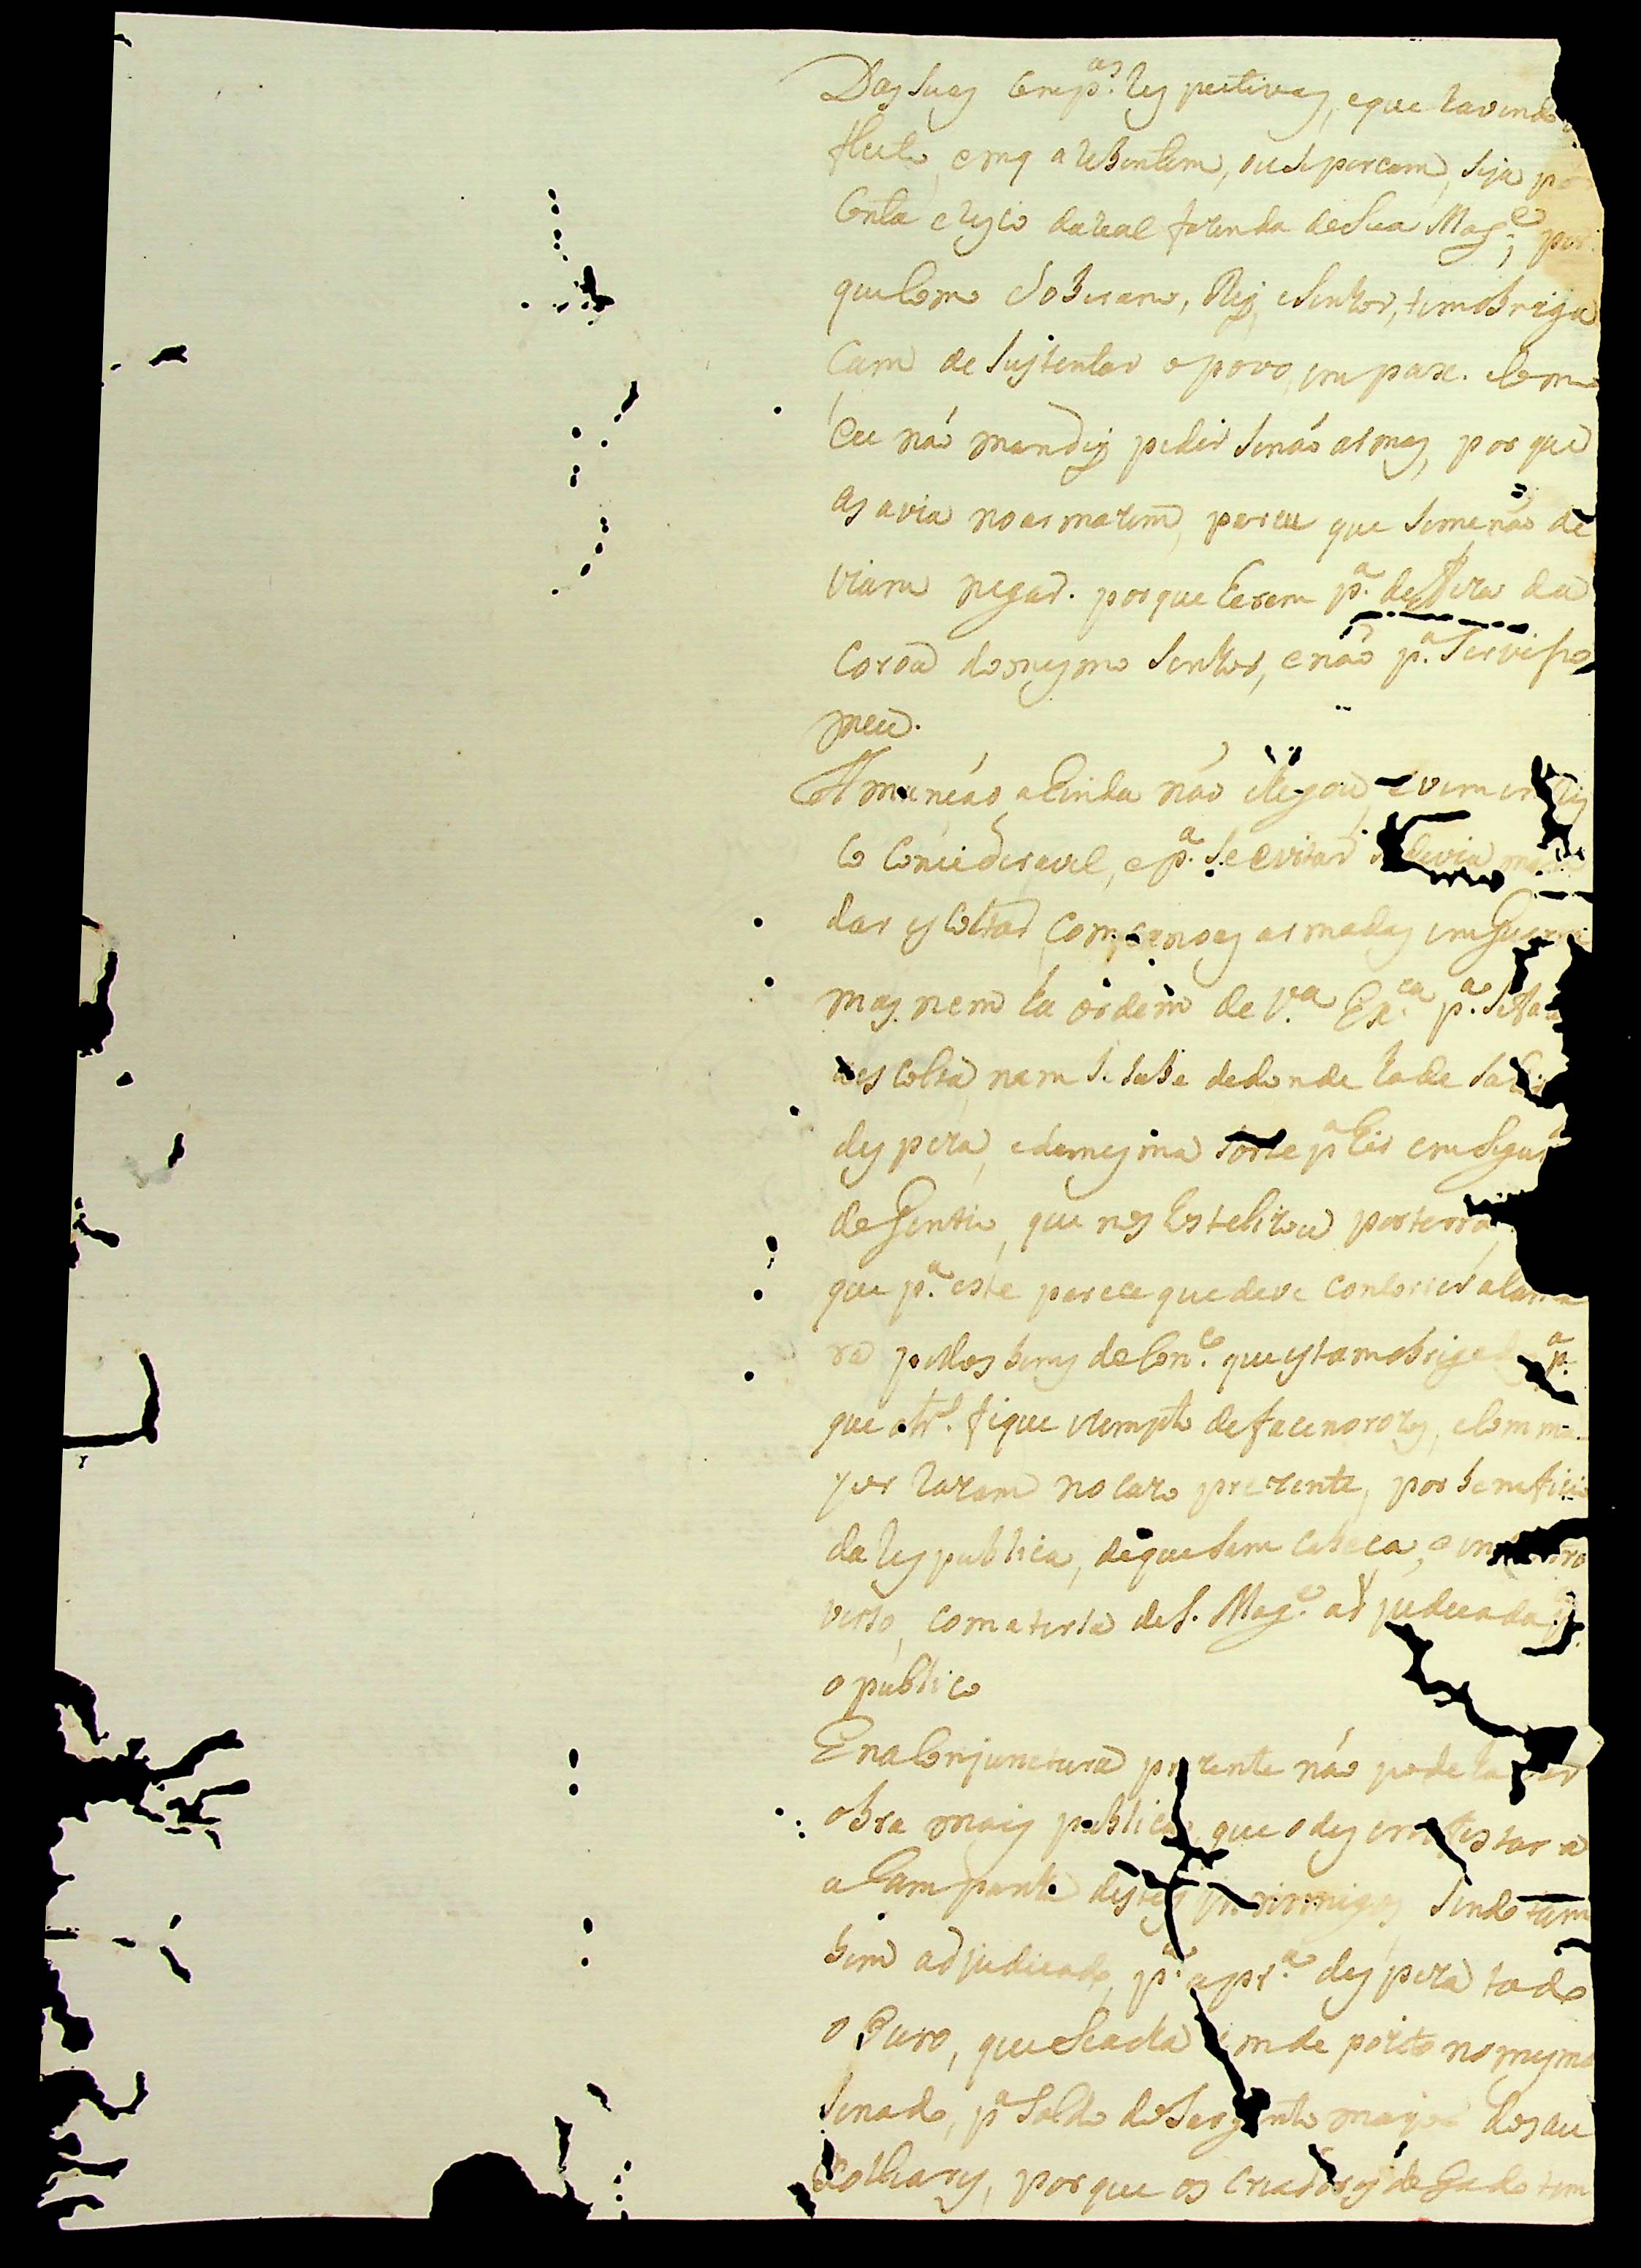 Das suas Comp.as respectivas, e que havendo
frente, em q arebentem, ou se percam, seja por
Conta e risco da real fazenda de Sua Mag.e; por
que como Soberano, Rey, e Senhor, tem obriga
cam de sustentar o povo em paz. e como
Eu não mandey pedir senão armas, por que
as avia no armazem, pareceu que se me não de
viam negar. porque herem p.a defeza da
Coroa do mesmo Senhor, e não p.a Servisso
meu.
A munição ahinda não chegou, e vem em ris
co concideravel, e p.a se evitar se devia man
dar escoltar com canoas armadas em Guerra
mas nem ha ordem de V.a Ex.ca p.a se fazer
a escolta, nam se sabe de donde ha de sahir
despeza, e da mesma sorte p.a hir em segui
de Gentio, que nos hostelizou por terra
que p.a este parece que deve concorrer a Cama
ra pellos bens do Con.co que estam obrigados p.a
que o tr.o fique izempto de facenorozos, e com ma
yor razam no cazo prezente, por beneficio
da respublica, de que sam cabeça, e em
verso, com a terssa de S. Mag.e adjudicada p.a
o publico
E na Conjunctura prezente não pode haver
obra mais publica, que o desemfestar a
a Campanha destes inimigos, sendo tam
bem adjudicado, p.a a pr.a despeza todo
o Ouro, que se acha em depozito no mesmo
senado, p.a soldo do sargento mayor dos au
xolliares, por que os criadores de Gado tem